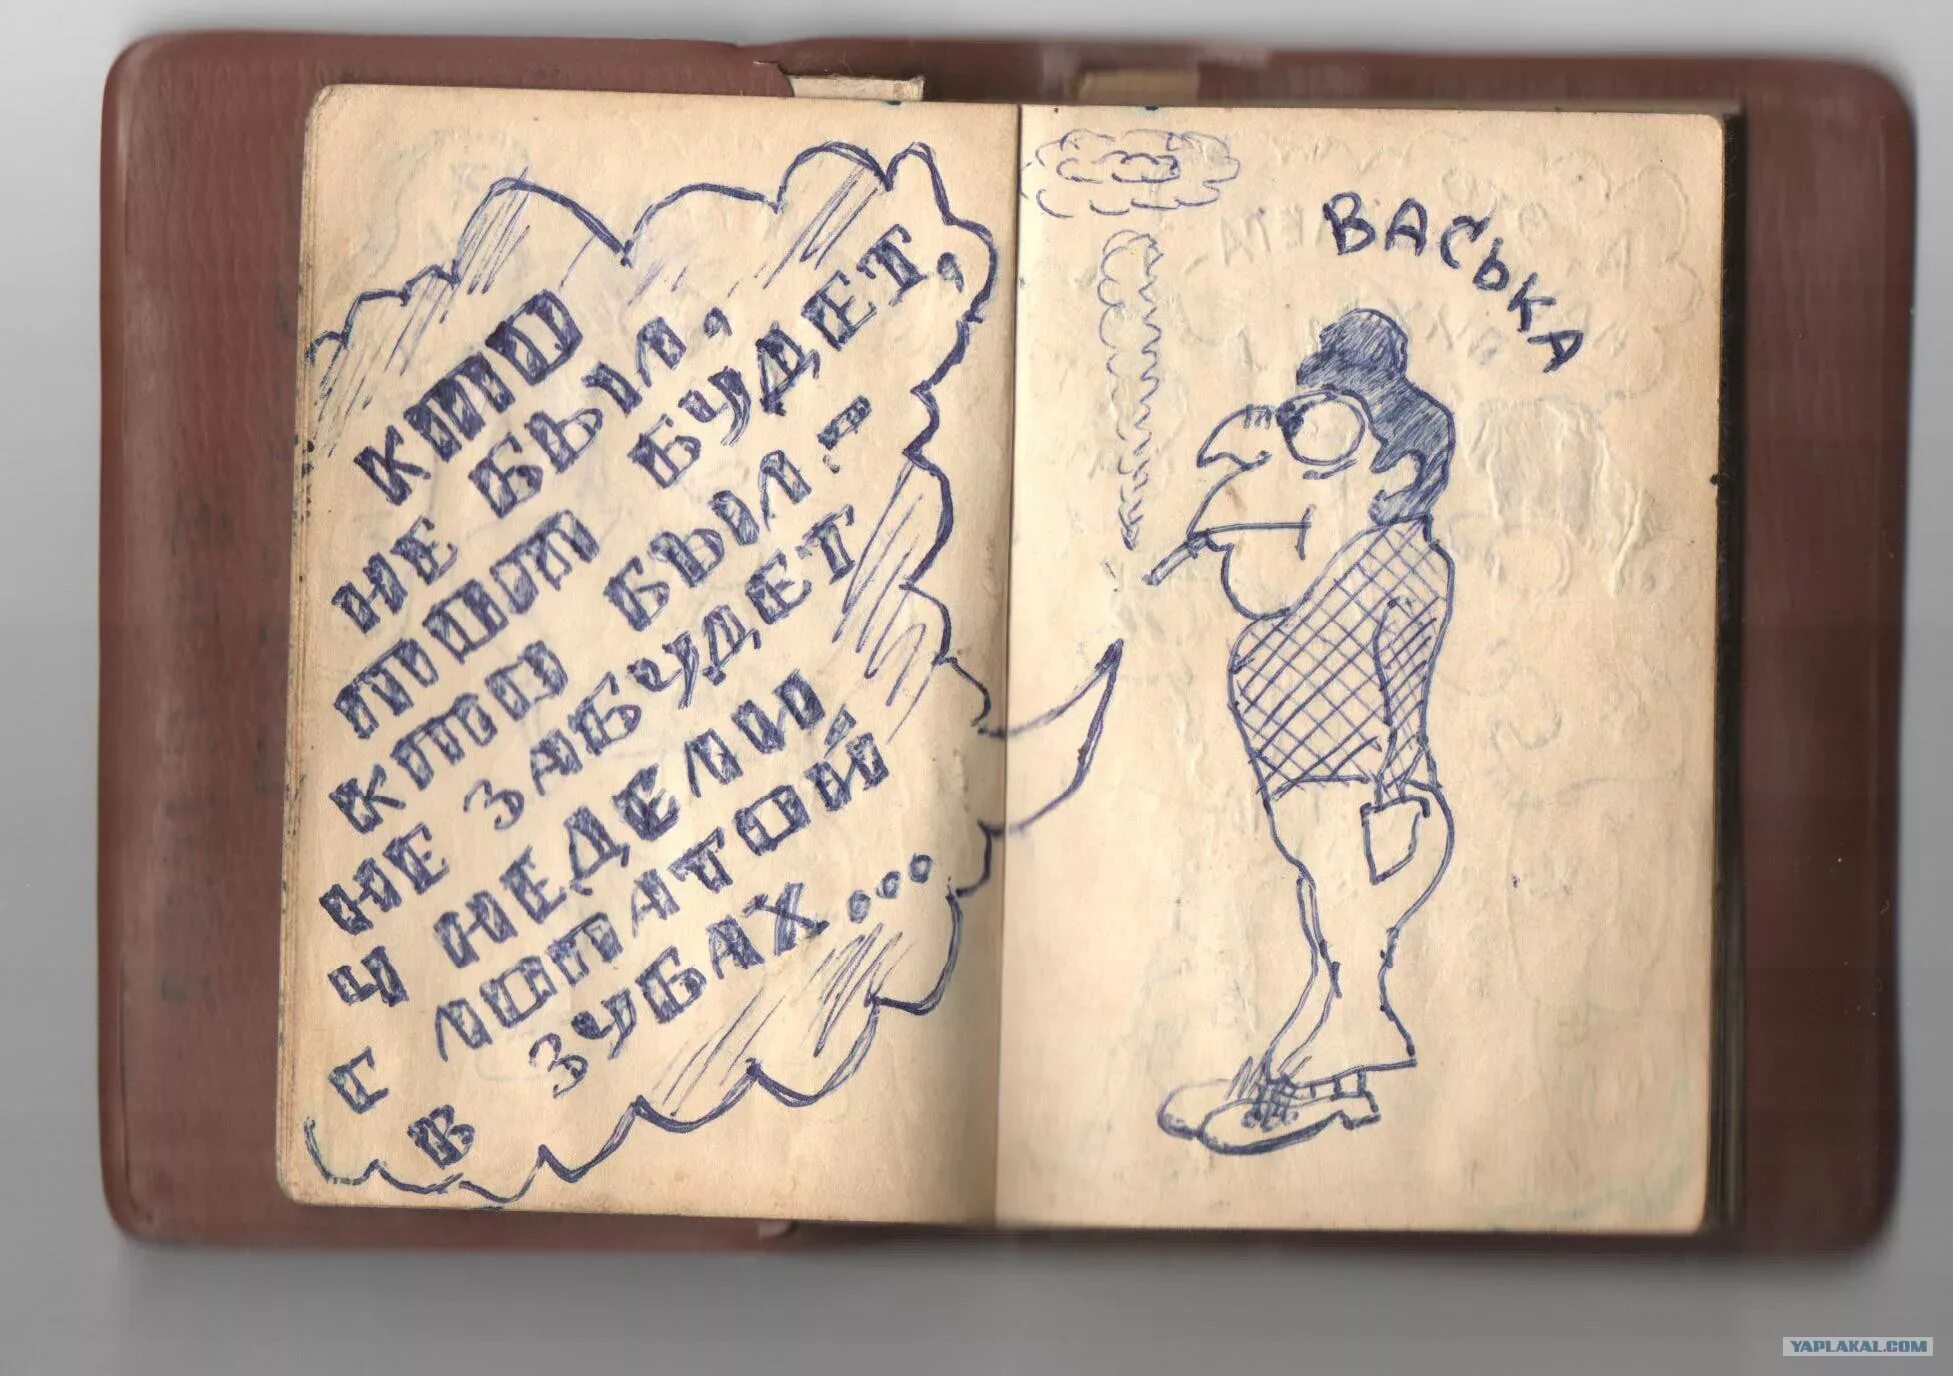 КТО
НЕ БЫЛ,
ТОТ БУДЕТ,
КТО БЫЛ-
НЕ ЗАБУДЕТ
Ч НЕДЕЛИ
С ЛОПАТОЙ
В ЗУБАХ...
ВАСЬКА
YAPLAKAL.COM